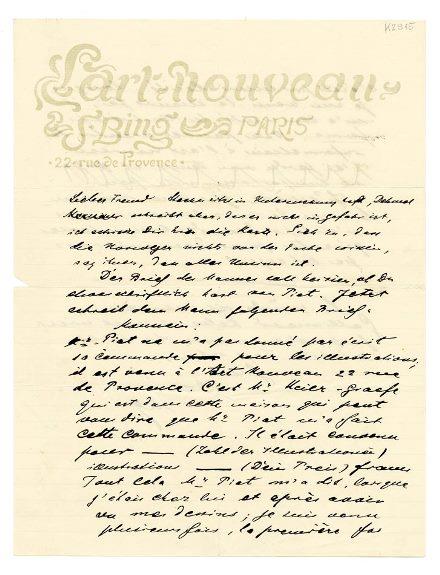 K2915
L'art nouveau
S. Bing PARIS
22 rue de Provence
Lieber Freund Mann ist in Untersuchung, Dehmel
schreibt aber, dass er nicht in Gefahr ist,
ich schreibe Dir hier die Karte. Sieh zu, dass
die Norweger nichts von der Sache,
sag ihnen, dass alles Unsinn ist.
Der Brief des Mannes soll, ob Du
schriftlich hast von Piat. Jetzt
schreib dem Mann folgenden Brief.
Monsieur:
Mr. Piat ne m'a pas donné par écrit
sa commande pour les illustrations,
il est venu à l'Art Nouveau 22 rue
de Provence. C'est Mr. Meier-Graefe
qui est dans cette maison qui peut
vous dire que Mr Piat m'a fait
cette commande. Il était convenu
pour — (Zahl der Illustrationen)
illustrations — (Dein Preis) francs
Tout cela Mr. Piat m'a dit, lorsque
j'étais chez lui et après avoir
vu mes dessins; je suis venu
plusieurs fois, la première fois